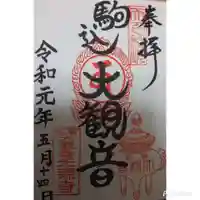 奉拝
駒込大観音
令和元年五月十四日